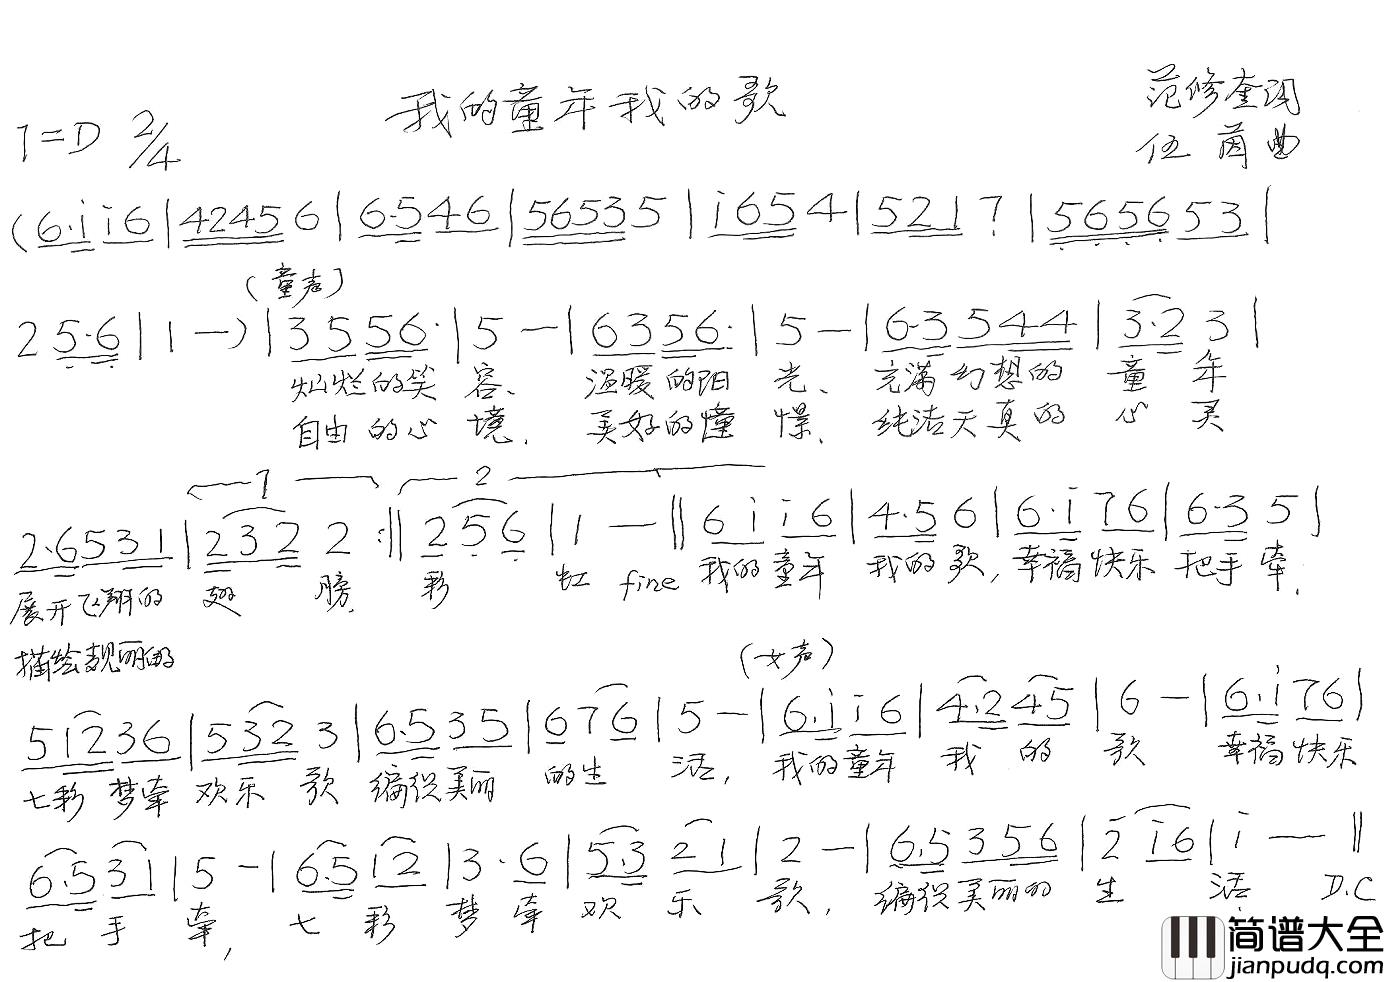 我的童年我的歌
范修奎词
1=D 2/4
伍茵曲
(6·i i6|42456|6·546|56535|i654|5217|565653|
(童声)
2 5·6|1—)|3556·|5—|6356·|5—|6·3544|3·23|
灿烂的笑容、温暖的阳光、充满幻想的童年
自由的心境、美好的憧憬、纯洁天真的心灵
1 2
2·6531|2322:||256|1—||6i i6|4·56|6·i76|6·35|
展开飞翔的翅膀、彩虹 fine 我的童年我的歌,幸福快乐把手牵,
描绘靓丽的
(女声)
51236|5323|6·535|676|5—|6·i i6|4·245|6—|6·i76|
七彩梦牵欢乐歌编织美丽的生活,我的童年我的歌幸福快乐
6·531|5—|6·512|3·6|5·321|2—|6·5356|2i6|i—||
把手牵,七彩梦牵欢乐歌,编织美丽的生活, D.C
简谱大全
jianpudq.com